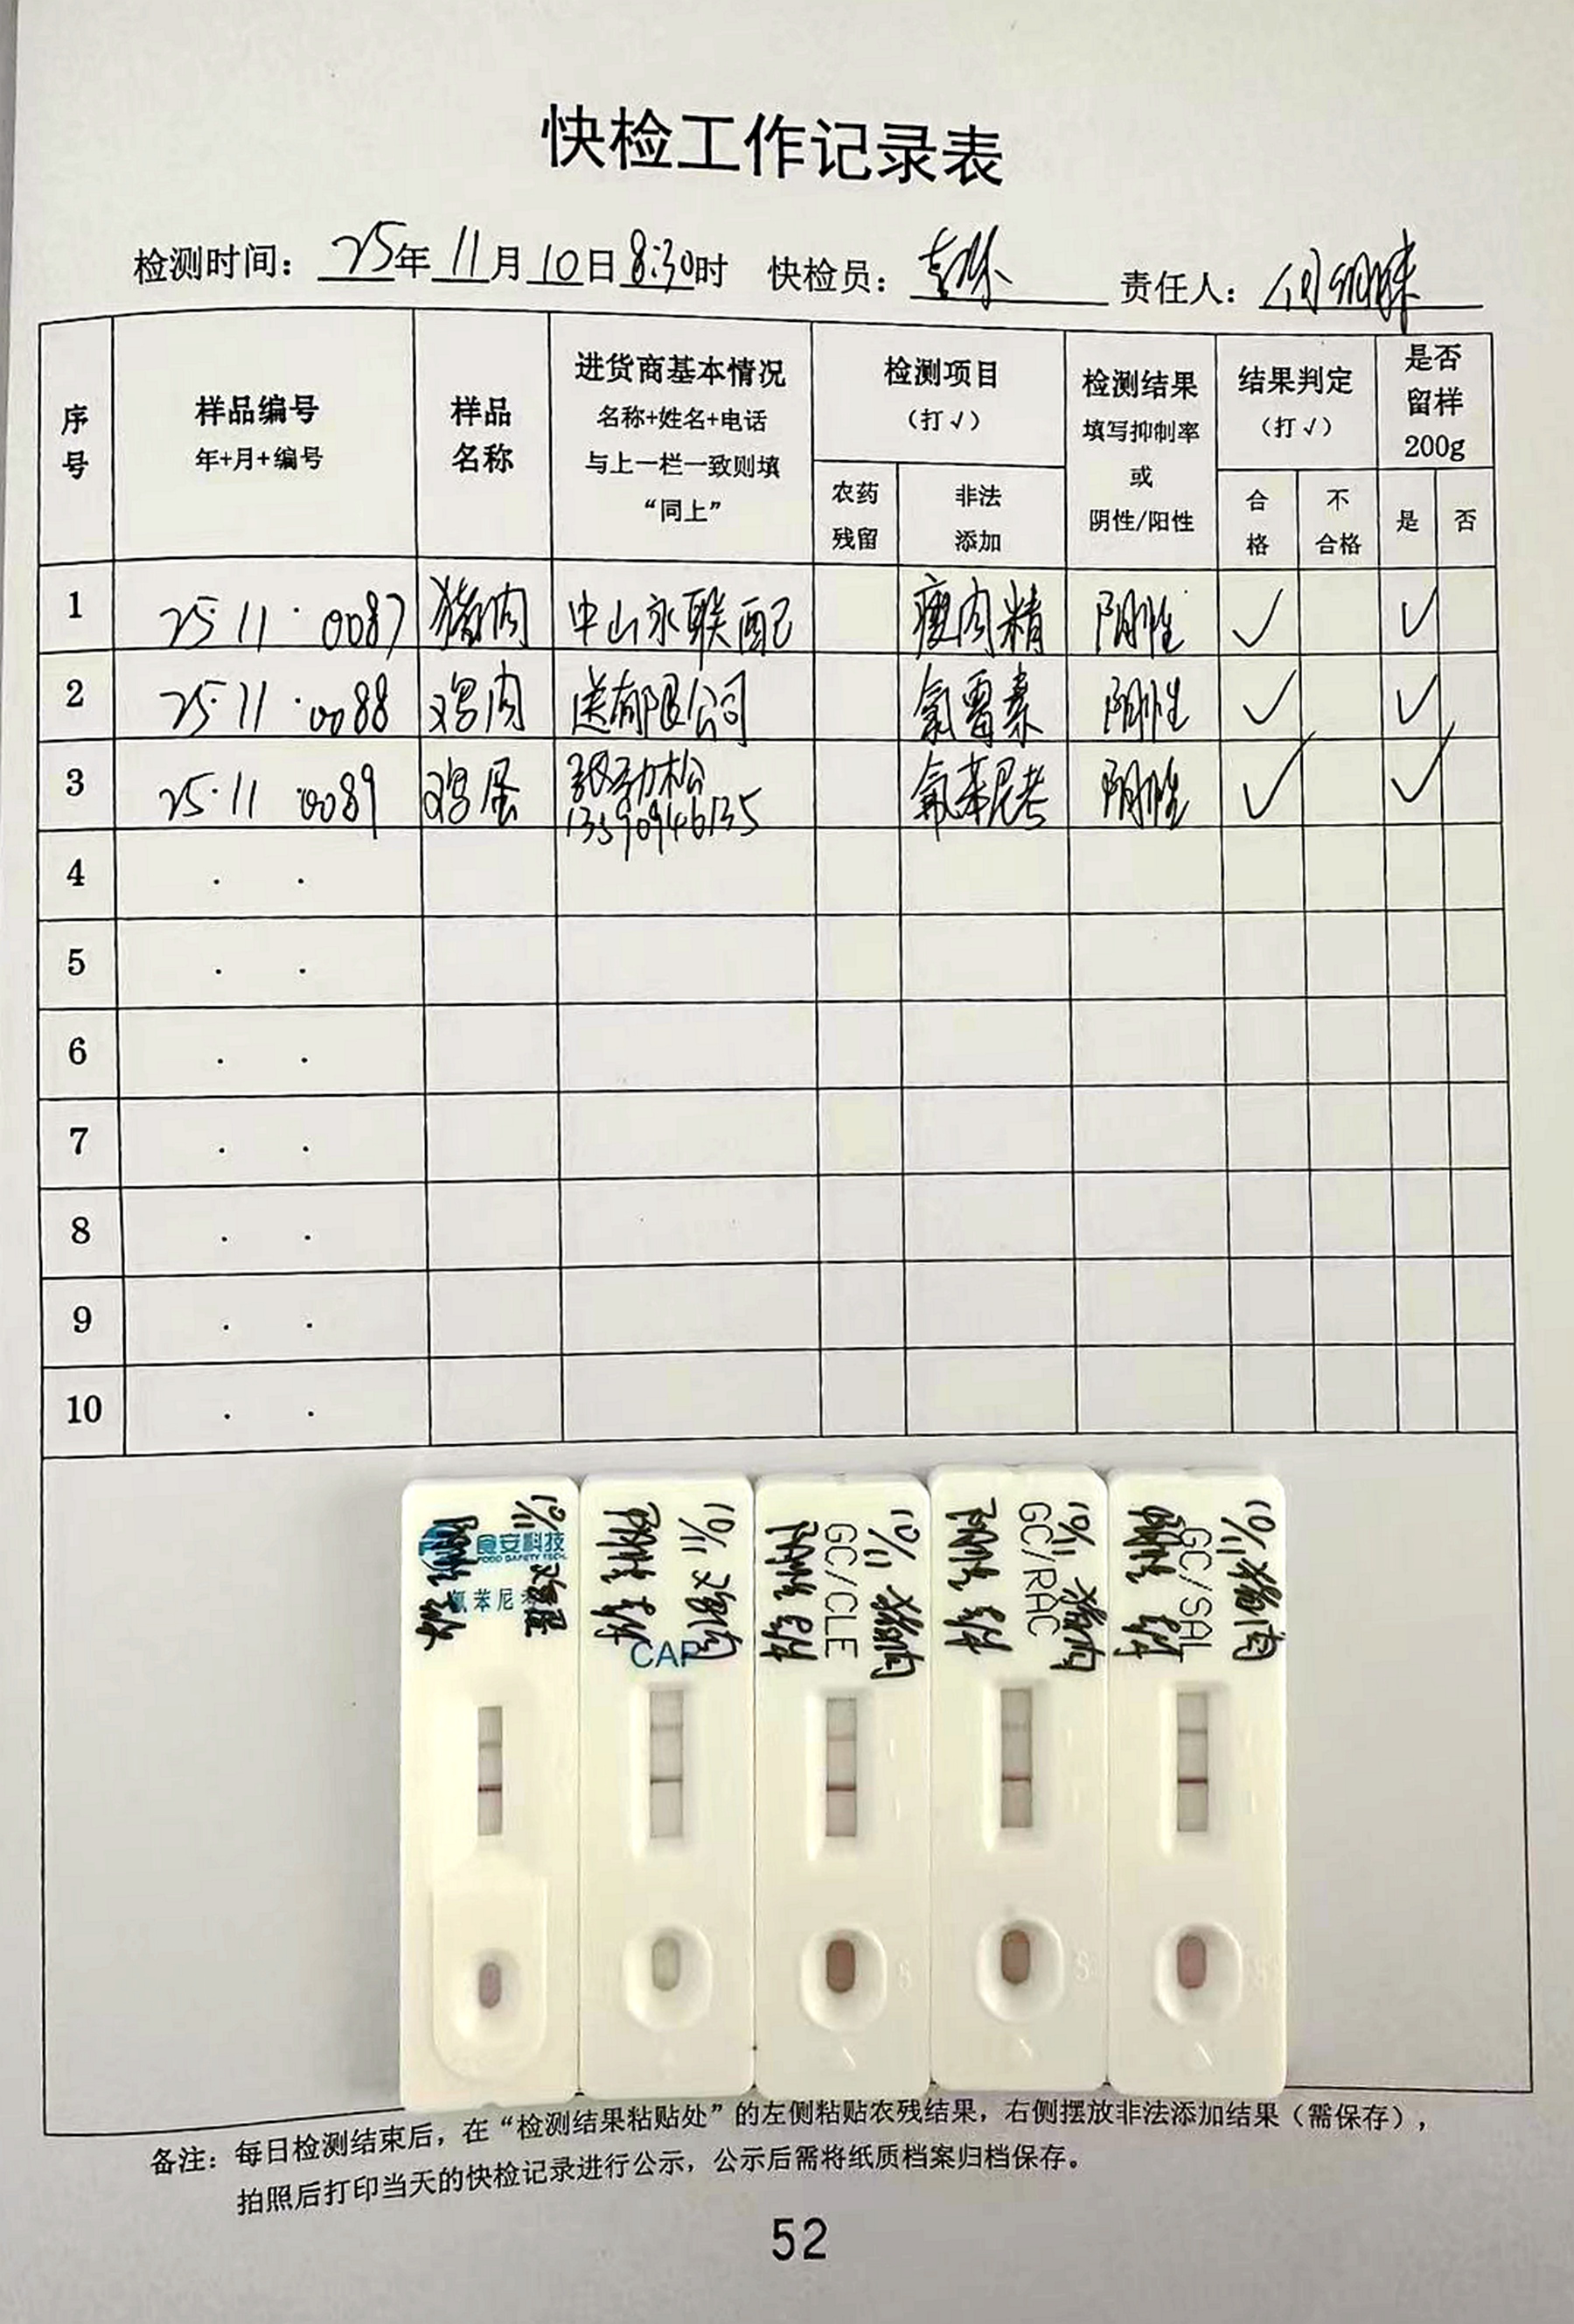 快检工作记录表
检测时间： 25年 11月 10日 8:30时 快检员： 责任人：
序号 样品编号 年+月+编号 样品名称 进货商基本情况 名称+姓名+电话 与上一栏一致则填 “同上” 检测项目 （打√） 农药残留 非法添加 检测结果 填写抑制率 或 阴性/阳性 结果判定 （打√） 合格 不合格 是否留样 200g 是 否
1 25·11·0087 猪肉 中山永联配 瘦肉精 阴性 ✓ ✓
2 25·11·0088 鸡肉 送有限公司 氯霉素 阴性 ✓ ✓
3 25·11·0089 鸡蛋 劲松 13590946135 氟苯尼考 阴性 ✓ ✓
4 . .
5 . .
6 . .
7 . .
8 . .
9 . .
10 . .
10/11 鸡蛋
食安科技
FOOD SAFETY TECH.
氟苯尼考
阴性
10/11 鸡肉
阴性
CAP
10/11 猪肉
GC/CLE
阴性
10/11 猪肉
GC/RAC
阴性
10/11 猪肉
GC/SAL
阴性
备注：每日检测结束后，在“检测结果粘贴处”的左侧粘贴农残结果，右侧摆放非法添加结果（需保存），
拍照后打印当天的快检记录进行公示，公示后需将纸质档案归档保存。
52